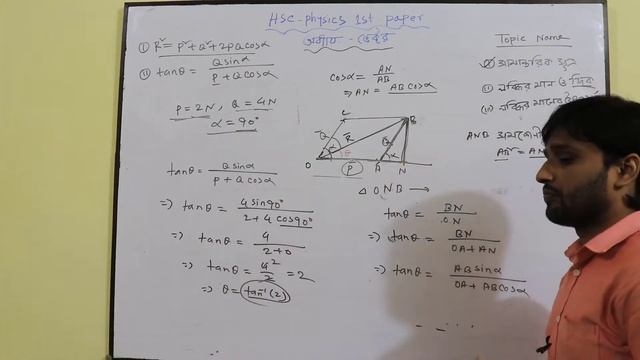 HSC-physics 1st paper
অধ্যায় - ভেক্টর
① R² = P² + Q² + 2PQcosα
⑪ tanθ = Qsinα / P + Qcosα
P = 2N, Q = 4N
α = 90°
tanθ = Qsinα / P + Qcosα
⇒ tanθ = 4sin90° / 2+4cos90°
⇒ tanθ = 4 / 2+0
⇒ tanθ = 4² / 2 = 2
⇒ θ = tan⁻¹(2)
cosα = AN / AB
⇒ AN = ABcosα
C
B
Q
R
Q
α
θ
α
O
P
A
N
Δ ONB →
tanθ = BN / ON
⇒ tanθ = BN / OA+AN
⇒ tanθ = ABsinα / OA+ABcosα
Topic Name
সূত্র
⑪ লব্ধির মান ও দিক
⑪ লব্ধির মানের
ANB